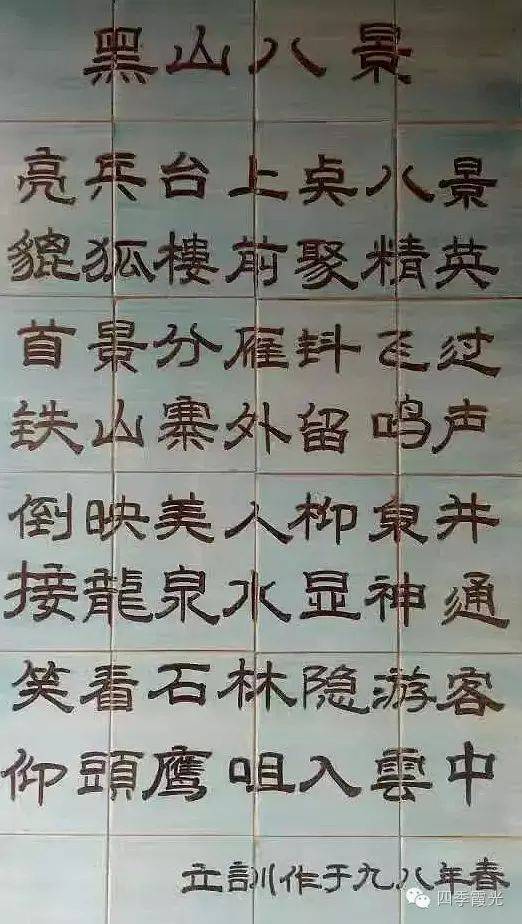 黑山八景
亮兵台上奌八景
貔狐樓前聚精英
首景分雁斜飞过
铁山寨外留鸣声
倒映美人柳井
接龍泉水显神通
笑看石林隐游客
仰頭鹰咀入雲中
立訓作于九八年春
四季霞光